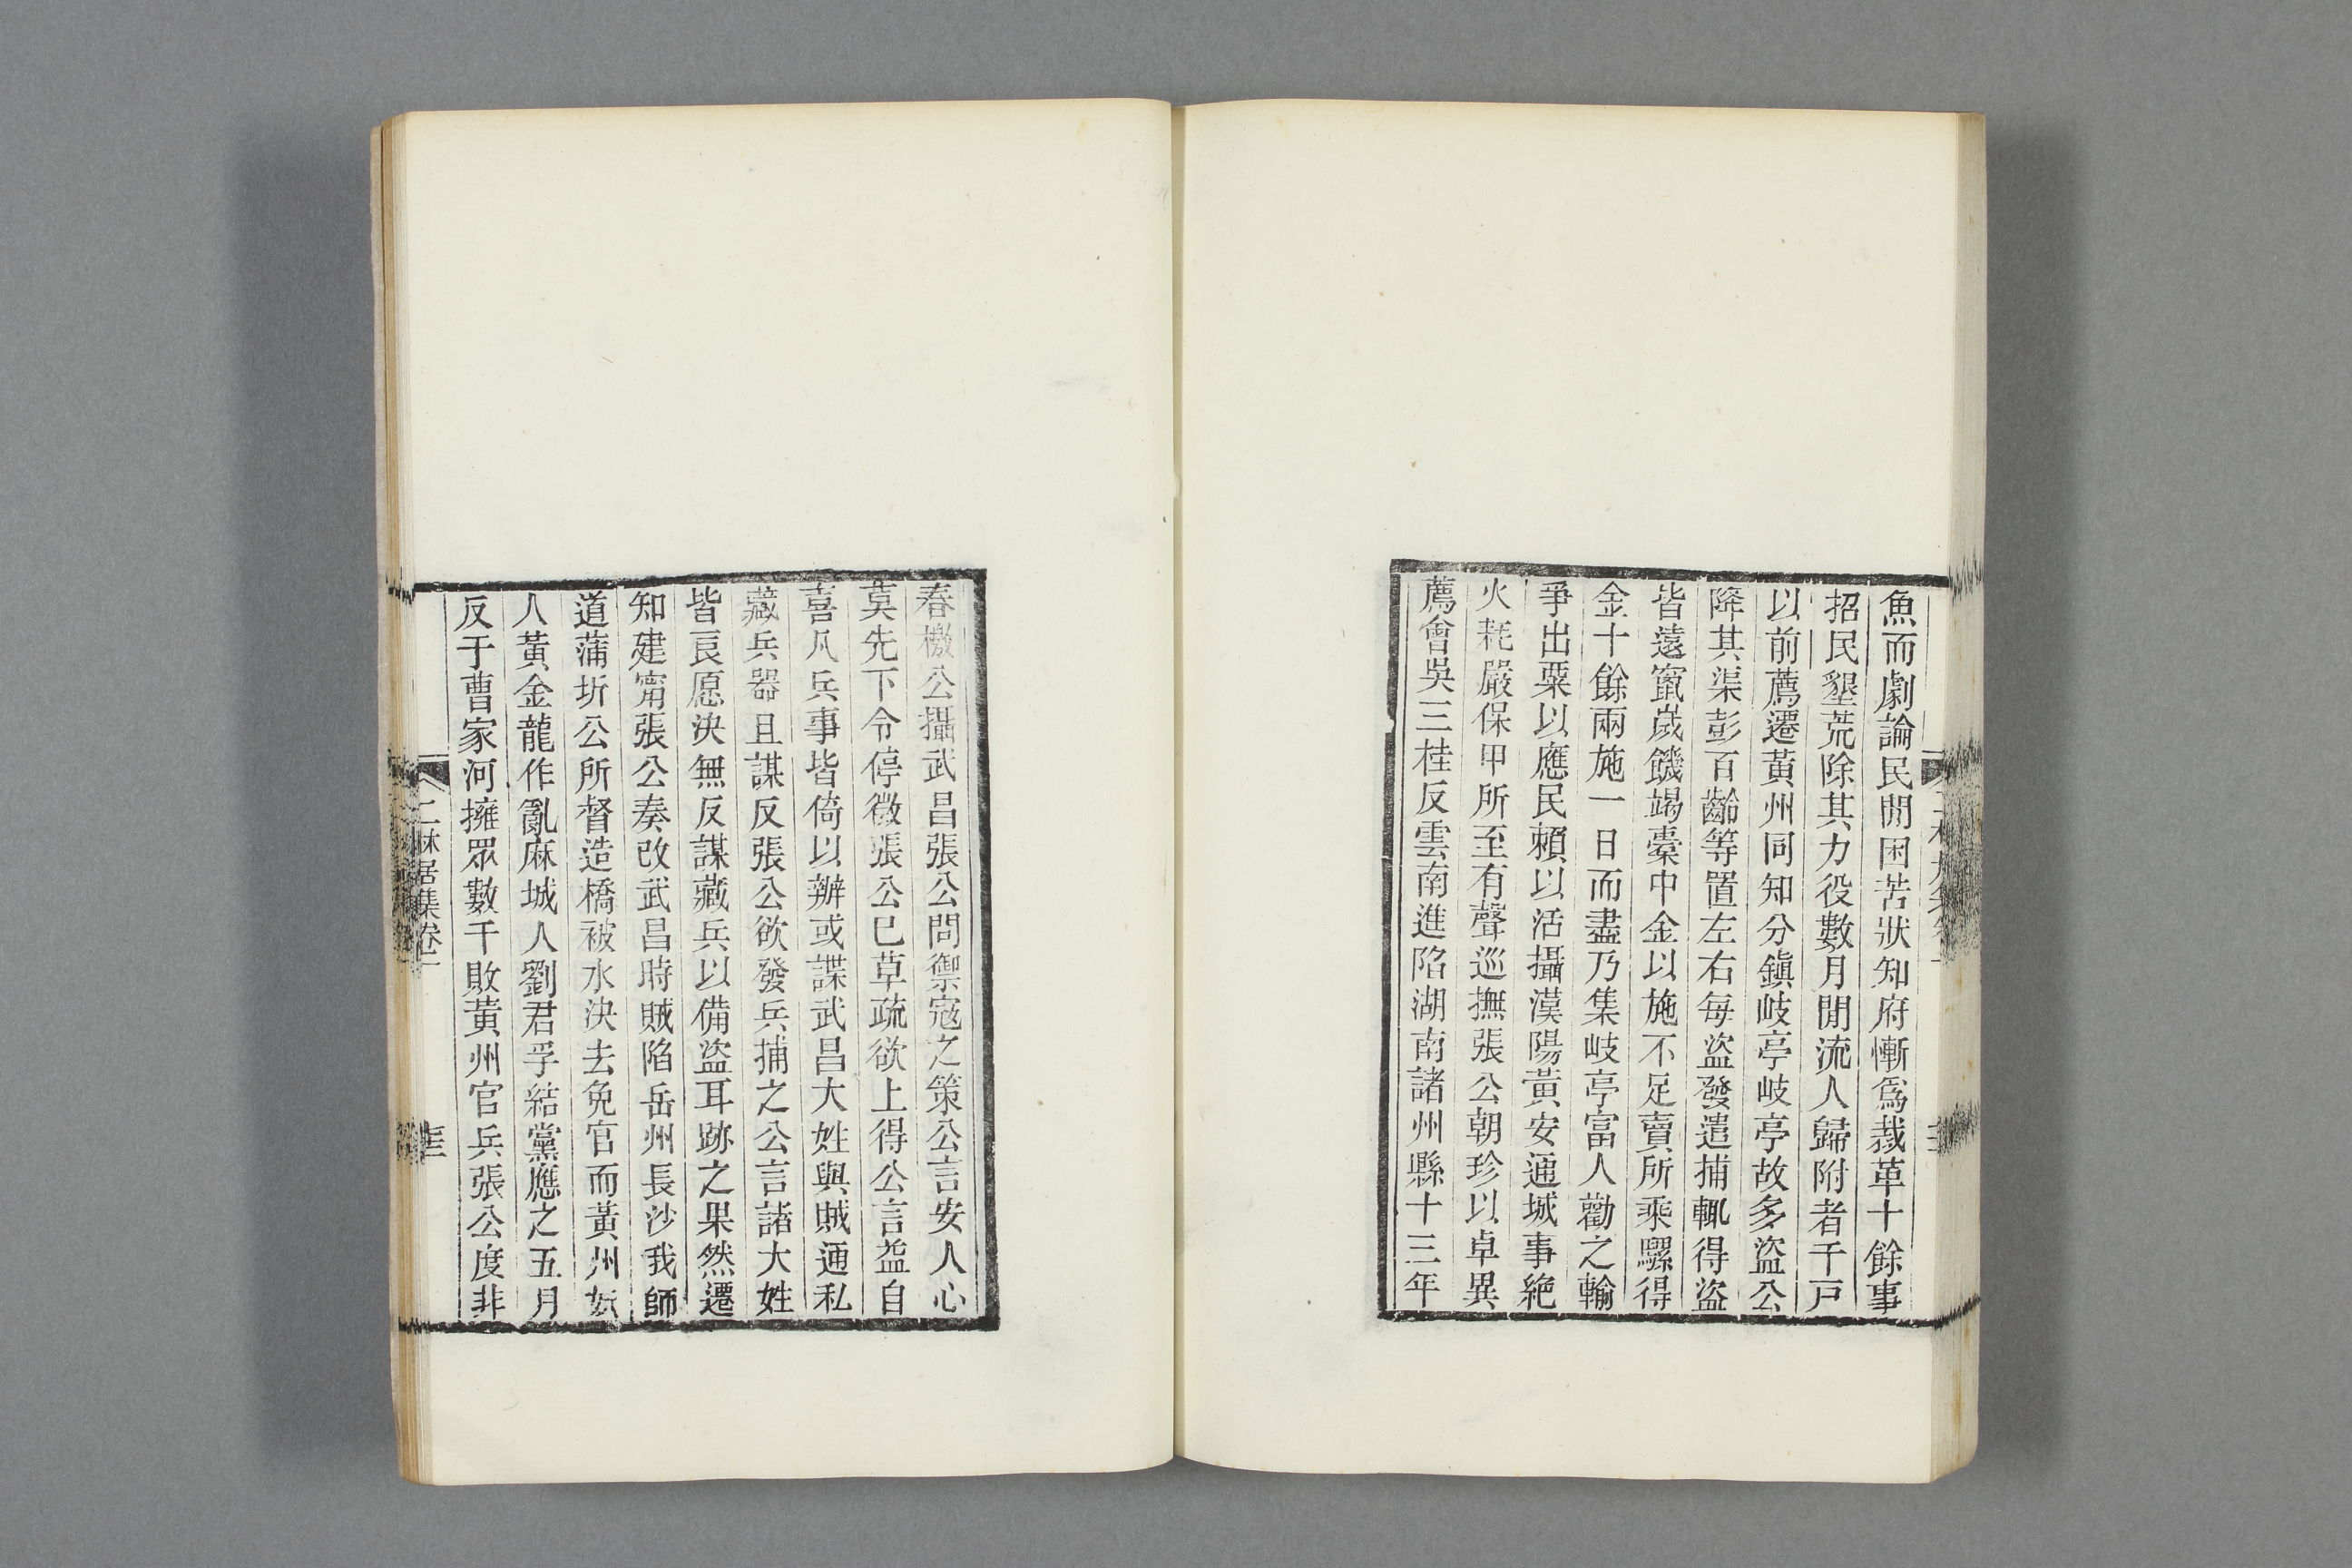 魚而劇論民閒困苦狀知府慚爲裁革十餘事
招民墾荒除其力役數月閒流人歸附者千戸
以前薦遷黃州同知分鎭岐亭岐亭故多盜公
降其渠彭百齡等置左右每盜發遣捕輒得盜
皆遠竄歲饑竭橐中金以施不足賣所乘騾得
金十餘兩施一日而盡乃集岐亭富人勸之輸
爭出粟以應民賴以活攝漢陽黃安通城事絶
火耗嚴保甲所至有聲巡撫張公朝珍以卓異
薦會吳三桂反雲南進陷湖南諸州縣十三年
春檄公攝武昌張公問禦寇之策公言安人心
莫先下令停徵張公已草疏欲上得公言益自
喜凡兵事皆倚以辦或諜武昌大姓與賊通私
藏兵器且謀反張公欲發兵捕之公言諸大姓
皆良愿決無反謀藏兵以備盜耳跡之果然遷
知建甯張公奏改武昌時賊陷岳州長沙我師
道蒲圻公所督造橋被水決去免官而黃州妖
人黃金龍作亂麻城人劉君孚結黨應之五月
反于曹家河擁眾數千敗黃州官兵張公度非
二林居集卷十